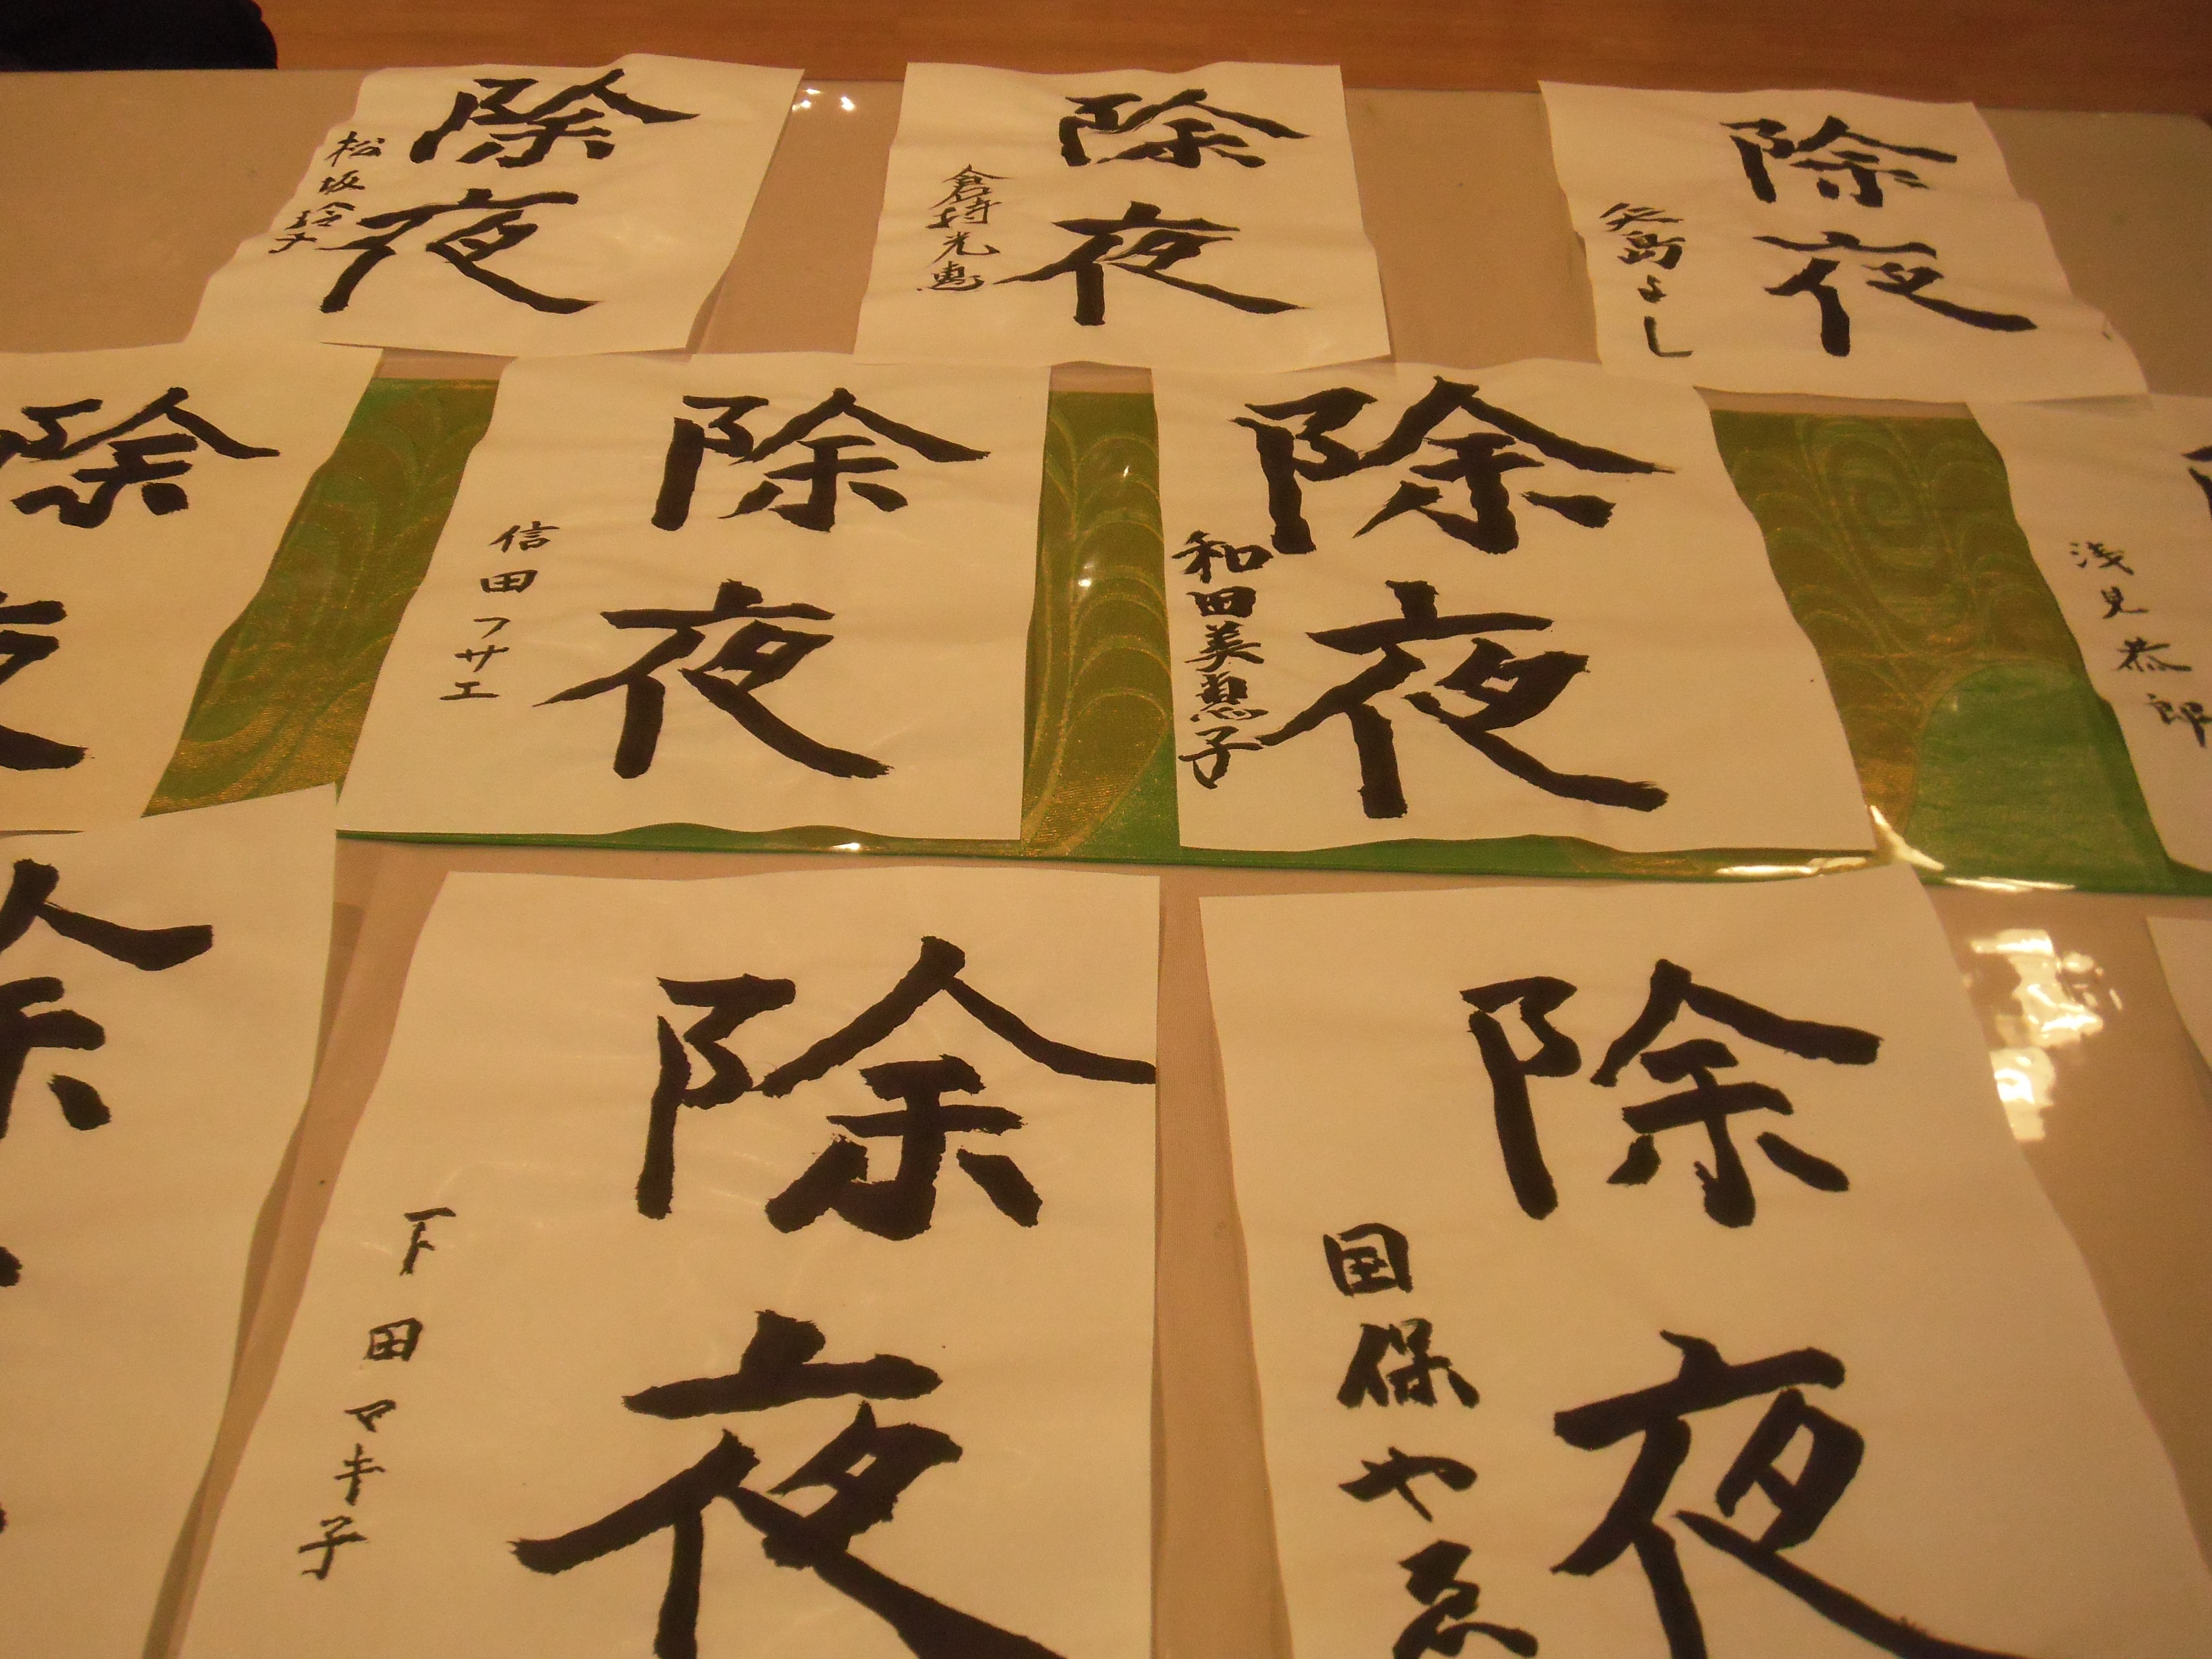 除夜
松坂玲子
除夜
倉持光恵
除夜
矢島よし
除
夜
除夜
信田フサエ
除夜
和田美恵子
浅見恭郎
除夜
下田マキ子
除夜
国保やゑ